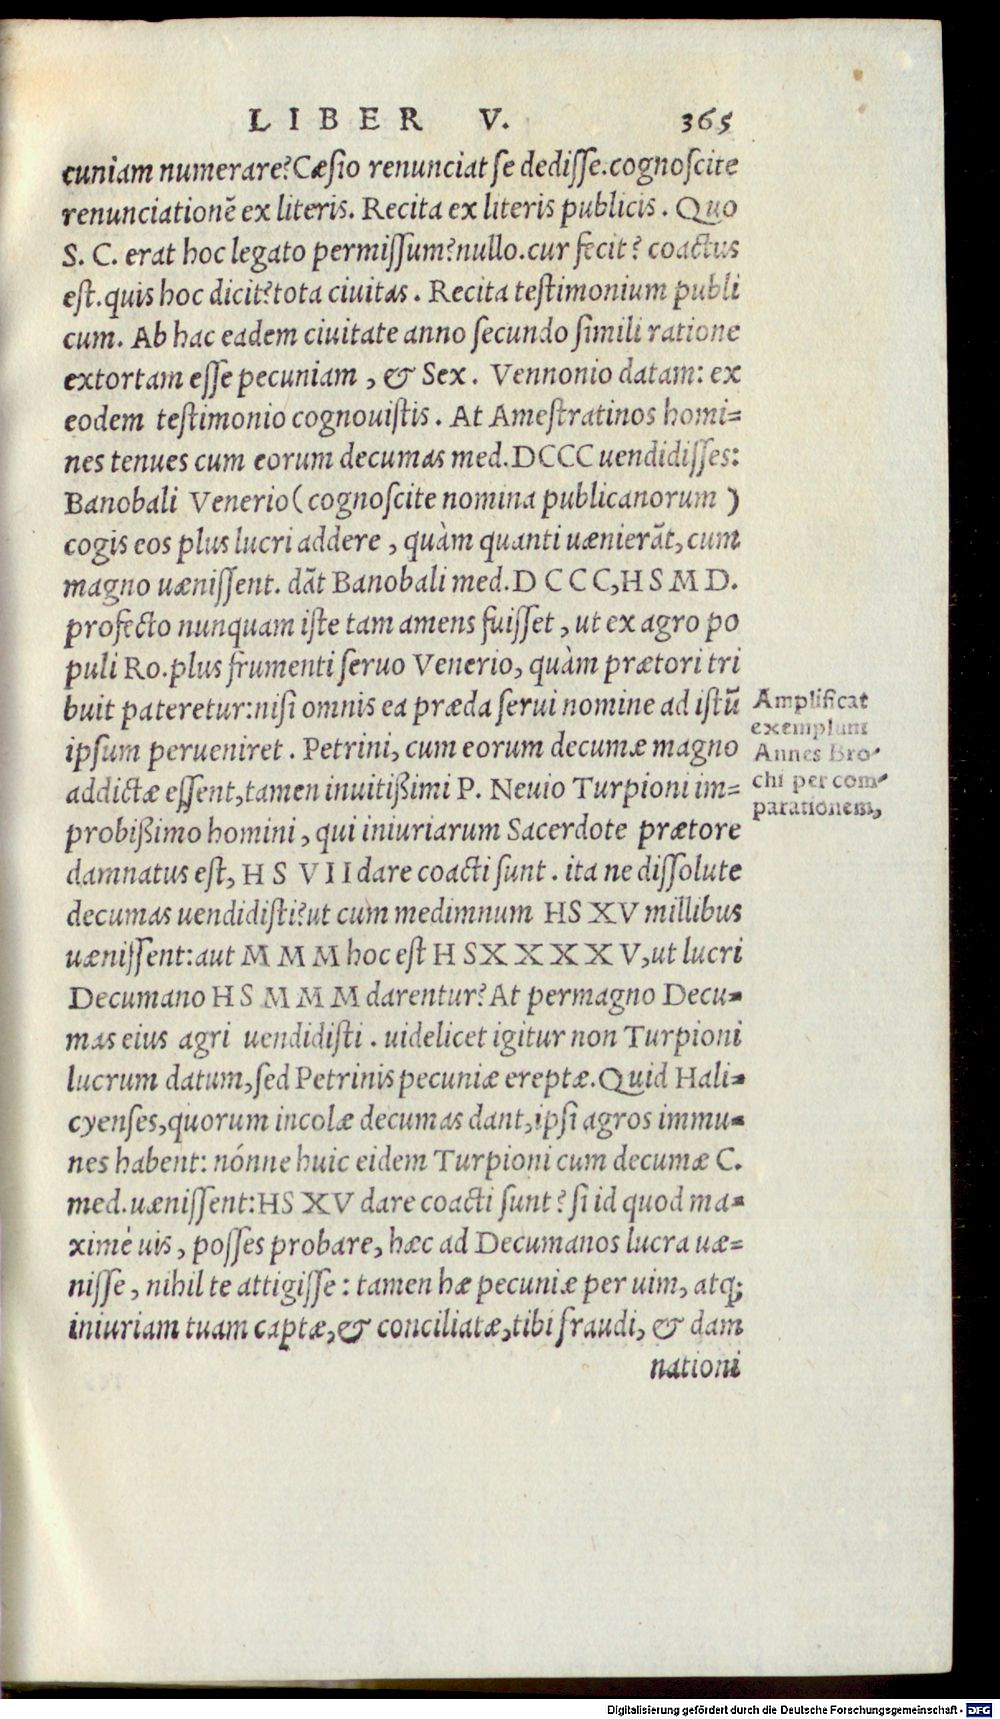 LIBER V. 365
cuniam numerare? Cæsio renunciat se dedisse. cognoscite
renunciationē ex literis. Recita ex literis publicis. Quo
S. C. erat hoc legato permissum? nullo. cur fecit? coactus
est. quis hoc dicit? tota ciuitas. Recita testimonium publi
cum. Ab hac eadem ciuitate anno secundo simili ratione
extortam esse pecuniam, & Sex. Vennonio datam: ex
eodem testimonio cognouistis. At Amestratinos homi=
nes tenues cum eorum decumas med. DCCC uendidisses:
Banobali Venerio (cognoscite nomina publicanorum)
cogis eos plus lucri addere, quàm quanti uænierāt, cum
magno uænissent. dāt Banobali med. D C C C, H S M D.
profecto nunquam iste tam amens fuisset, ut ex agro po
puli Ro. plus frumenti seruo Venerio, quàm prætori tri
buit pateretur: nisi omnis ea præda serui nomine ad istū
ipsum perueniret. Petrini, cum eorum decumæ magno
addictæ essent, tamen inuitißimi P. Neuio Turpioni im=
probißimo homini, qui iniuriarum Sacerdote prætore
damnatus est, H S VII dare coacti sunt. ita ne dissolute
decumas uendidisti? ut cum medimnum HS XV millibus
uænissent: aut M M M hoc est H S X X X X V, ut lucri
Decumano H S M M M darentur? At permagno Decu=
mas eius agri uendidisti. uidelicet igitur non Turpioni
lucrum datum, sed Petrinis pecuniæ ereptæ. Quid Hali=
cyenses, quorum incolæ decumas dant, ipsi agros immu=
nes habent: nónne huic eidem Turpioni cum decumæ C.
med. uænissent: HS XV dare coacti sunt? si id quod ma=
ximè uis, posses probare, hæc ad Decumanos lucra uæ=
nisse, nihil te attigisse: tamen hæ pecuniæ per uim, atq;
iniuriam tuam captæ, & conciliatæ, tibi fraudi, & dam
nationi
Amplificat
exemplum
Annes Bro=
chi per com=
parationem,
Digitalisierung gefördert durch die Deutsche Forschungsgemeinschaft - DFG